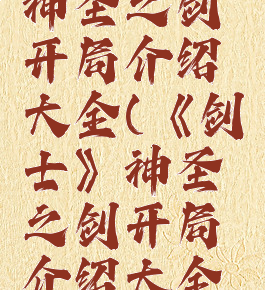 神圣之剑
开局介绍
大全(《剑
士》神圣
之剑开局
介绍大全